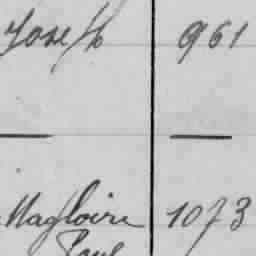 Joseph 961
Magloire 1073
Paul